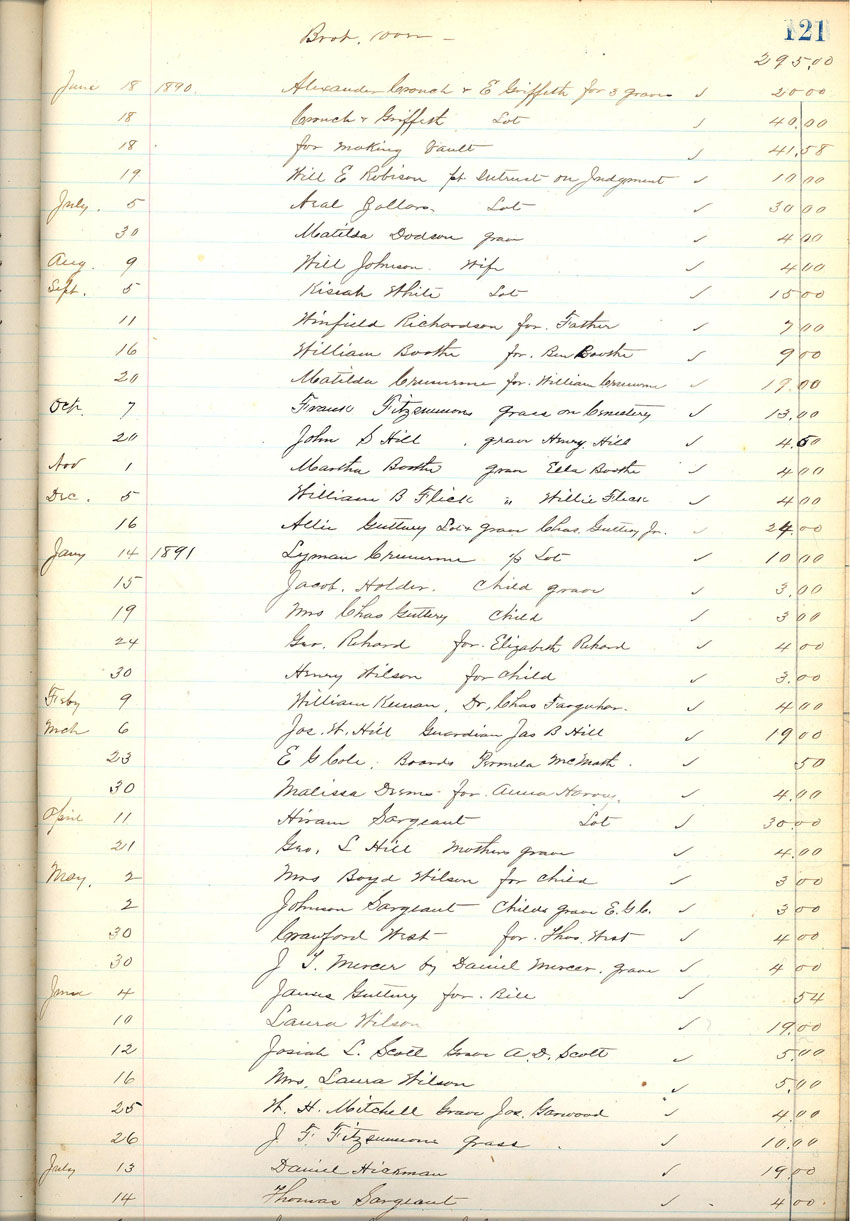 121
Brot. Over - 295.00
June 18 1890. Alexander Crouch & E Griffith for 3 graves ✓ 20 00
18 Crouch & Griffith Lot ✓ 40.00
18 . for making Vault ✓ 41.58
19 Will E Robison pt. Intrust on Judgment ✓ 10 00
July . 5 Lot ✓ 30 00
30 Matilda Dodson grave ✓ 4 00
Aug. 9 Will Johnson . Wife ✓ 4 00
Sept. 5 Kisiah White Lot ✓ 15 00
11 Winfield Richardson for. Father ✓ 7 00
16 William Boothe for. Ben Boothe ✓ 9 00
20 Matilda Crumrine for. William Crumrine ✓ 00
Oct. 7 Frank Fitzsimmons grass on Cemetery ✓ 13.00
20 John S Hill . grave Henry Hill ✓ 4.50
Nov 1 Martha Boothe grave Ella Boothe ✓ 4 00
Dec . 5 William B Flick " Willie Flick ✓ 4 00
16 Allie Guttery Lot & grave Chas. Guttery Jr. ✓ 24.00
Jany 14 1891 Lyman Crumrine ½ Lot ✓ 10 00
15 Jacob. Holder. Child grave ✓ 3.00
19 Mrs Chas Guttery Child ✓ 3 00
24 Geo. Rehard for. Elizabeth Rehard ✓ 4 00
30 Henry Wilson for child ✓ 3.00
Feby 9 William Keenan. Dr. Chas Farquhar. ✓ 4 00
Mch 6 Jos. W. Hill Guardian Jas B Hill ✓ 19 00
23 E G Cole . Boards McMath . ✓ 50
30 Malissa for. Anna ✓ 4.00
April 11 Hiram Sargeant Lot ✓ 30.00
21 Geo. L Hill Mothers grave ✓ 4.00
May. 2 Mrs Boyd Wilson for child ✓ 3 00
2 Johnson Sargeant Childs grave E.G.C. ✓ 3 00
30 Crawford West for. Thos. West ✓ 4 00
30 J T. Mercer by Daniel Mercer. grave ✓ 4 00
June 4 James Guttery for. Bill ✓ 54
10 Laura Wilson ✓ 19.00
12 Josiah L. Scott Grave A. D. Scott ✓ 5.00
16 Mrs. Laura Wilson ✓ 5.00
25 W. H. Mitchell Grave Jos. Garwood ✓ 4.00
26 J. F. Fitzsimmons grass . ✓ 10.00
July 13 Daniel Hickman ✓ 19.00
14 Thomas Sargeant ✓ 4 00.